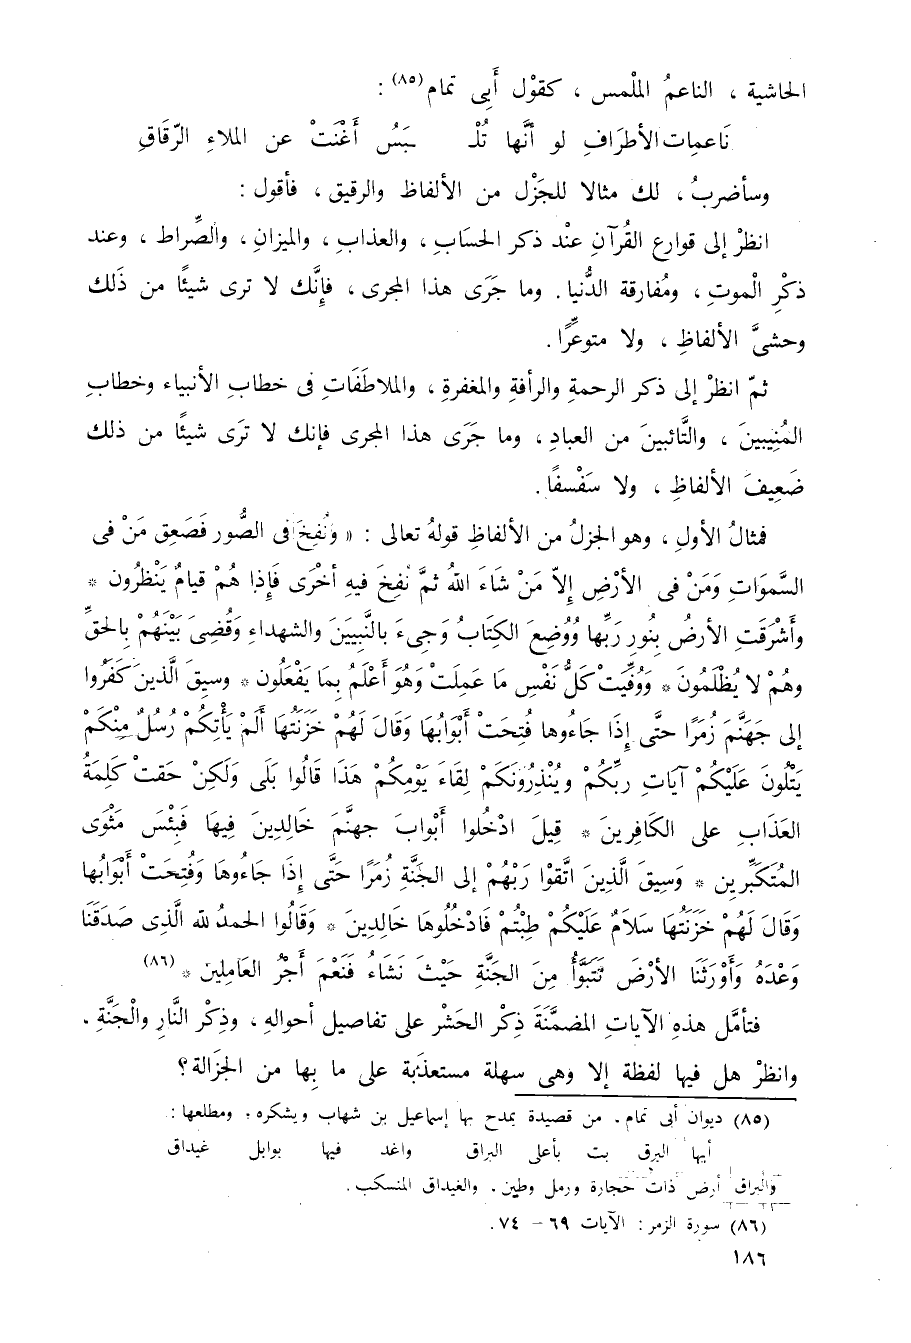 الحاشية ، الناعمُ الملْمس ، كقوْل أَبِى تمام(٨٥) :
نَاعمات الأطرافِ لو أنَّها تُلْـ ـبَسُ أَغْنَتْ عن الملاءِ الرّقَاقِ
وسأضربُ ، لك مثالا للجَزْل من الألفاظ والرقيق ، فأقول :
انظرْ إلى قوارع القُرآنِ عنْد ذكر الحسَابِ ، والعذابِ ، والميزانِ ، والصِّراط ، وعند
ذكْرِ الْموتِ ، ومُفارقة الدُّنيا . وما جَرَى هذا المجرى ، فإنَّك لا ترى شيئًا من ذَلك
وحشىَّ الألفاظِ ، ولا متوعِّرًا .
ثمّ انظرْ إلى ذكر الرحمةِ والرأفةِ والمغفرةِ ، والملاطَفَاتِ فى خطابِ الأنبياء وخطابِ
المُنِيبينَ ، والتَّائبينَ من العبادِ ، وما جَرَى هذا المجرى فإنك لا تَرَى شيئًا من ذلك
ضَعِيفَ الألفاظِ ، ولا سَفْسفًا .
فمثالُ الأولِ ، وهو الجزلُ من الألفاظِ قولهُ تعالى : « وَنُفِخَ فى الصُّور فَصَعِق مَنْ فى
السَّمَواتِ وَمَنْ فى الأرْضِ إلاّ مَنْ شَاءَ اللهُ ثمَّ نُفِخَ فيهِ أخْرَى فَإذا هُمْ قيامٌ يَنْظرُون *
وأَشْرقَتِ الأرضُ بِنُورِ رَبِّها وَوُضِعَ الكِتَابُ وَجِىءَ بالنَّبِيينَ والشهداءِ وَقُضِىَ بَيْنَهُمْ بِالحقِّ
وهُمْ لا يُظْلَمُونَ * وَوُفِّيَتْ كلُّ نَفْسٍ مَا عَمِلَتْ وَهُوَ أعْلَمُ بِمَا يَفْعَلُون * وسيِقَ الَّذينَ كَفَرُوا
إلى جَهَنَّمَ زُمَرًا حتَّى إِذَا جَاءُوها فُتِحَتْ أبْوَابُهَا وَقَالَ لَهُمْ خَزَنَتُهَا ألَمْ يَأْتِكُمْ رُسُلٌ مِنْكمْ
يَتْلُونَ عَلَيْكُمْ آيَاتِ ربِّكُمْ وَيُنْذِرُونَكمْ لِقَاءَ يَوْمِكُمْ هَذَا قَالُوا بَلَى وَلَكِنْ حَقتْ كَلِمَةُ
العَذَابِ على الكَافِرِينَ * قِيلَ ادْخُلوا أَبْوابَ جهنَّمَ خَالِدِينَ فِيهَا فَبِئْسَ مَثْوَى
المُتَكَبِّرينِ * وَسِيقَ الَّذِينَ اتَّقوْا رَبَّهُمْ إلى الجَنَّةِ زُمَرًا حَتَّى إذَا جَاءُوهَا وَفُتحَتْ أَبْوَابُها
وَقَالَ لَهُمْ خَزَنَتُهَا سَلَامٌ عَلَيْكُمْ طِبْتُمْ فَادْخُلُوهَا خَالِدِينَ * وَقَالُوا الحمدُ لله الَّذِى صَدَقَنَا
وَعْدَهُ وَأَوْرَثَنَا الأرْضَ نَتَبَوَّأُ مِنَ الجَنَّةِ حَيْثَ نَشَاءُ فَنَعْمَ أَجْرُ العَامِلين *(٨٦)
فتأمَّل هذهِ الآياتِ المضمَّنةَ ذِكْر الحَشْر على تفاصيل أحوالهِ ، وذِكْر النَّارِ والْجَنَّةِ .
وانظرْ هل فيها لفظة إلا وهى سهلة مستعذَبة على ما بِها من الجَزَالة ؟
(٨٥) ديوان أبى تمام . من قصيدة يمدح بها إسماعيل بن شهاب ويشكره ، ومطلعها :
أيها البرق بت بأعلى البراق واغد فيها بوابل غيداق
والبراق أرض ذات حجارة ورمل وطين . والغيداق المنسكب .
(٨٦) سورة الزمر : الآيات ٦٩ – ٧٤ .
١٨٦